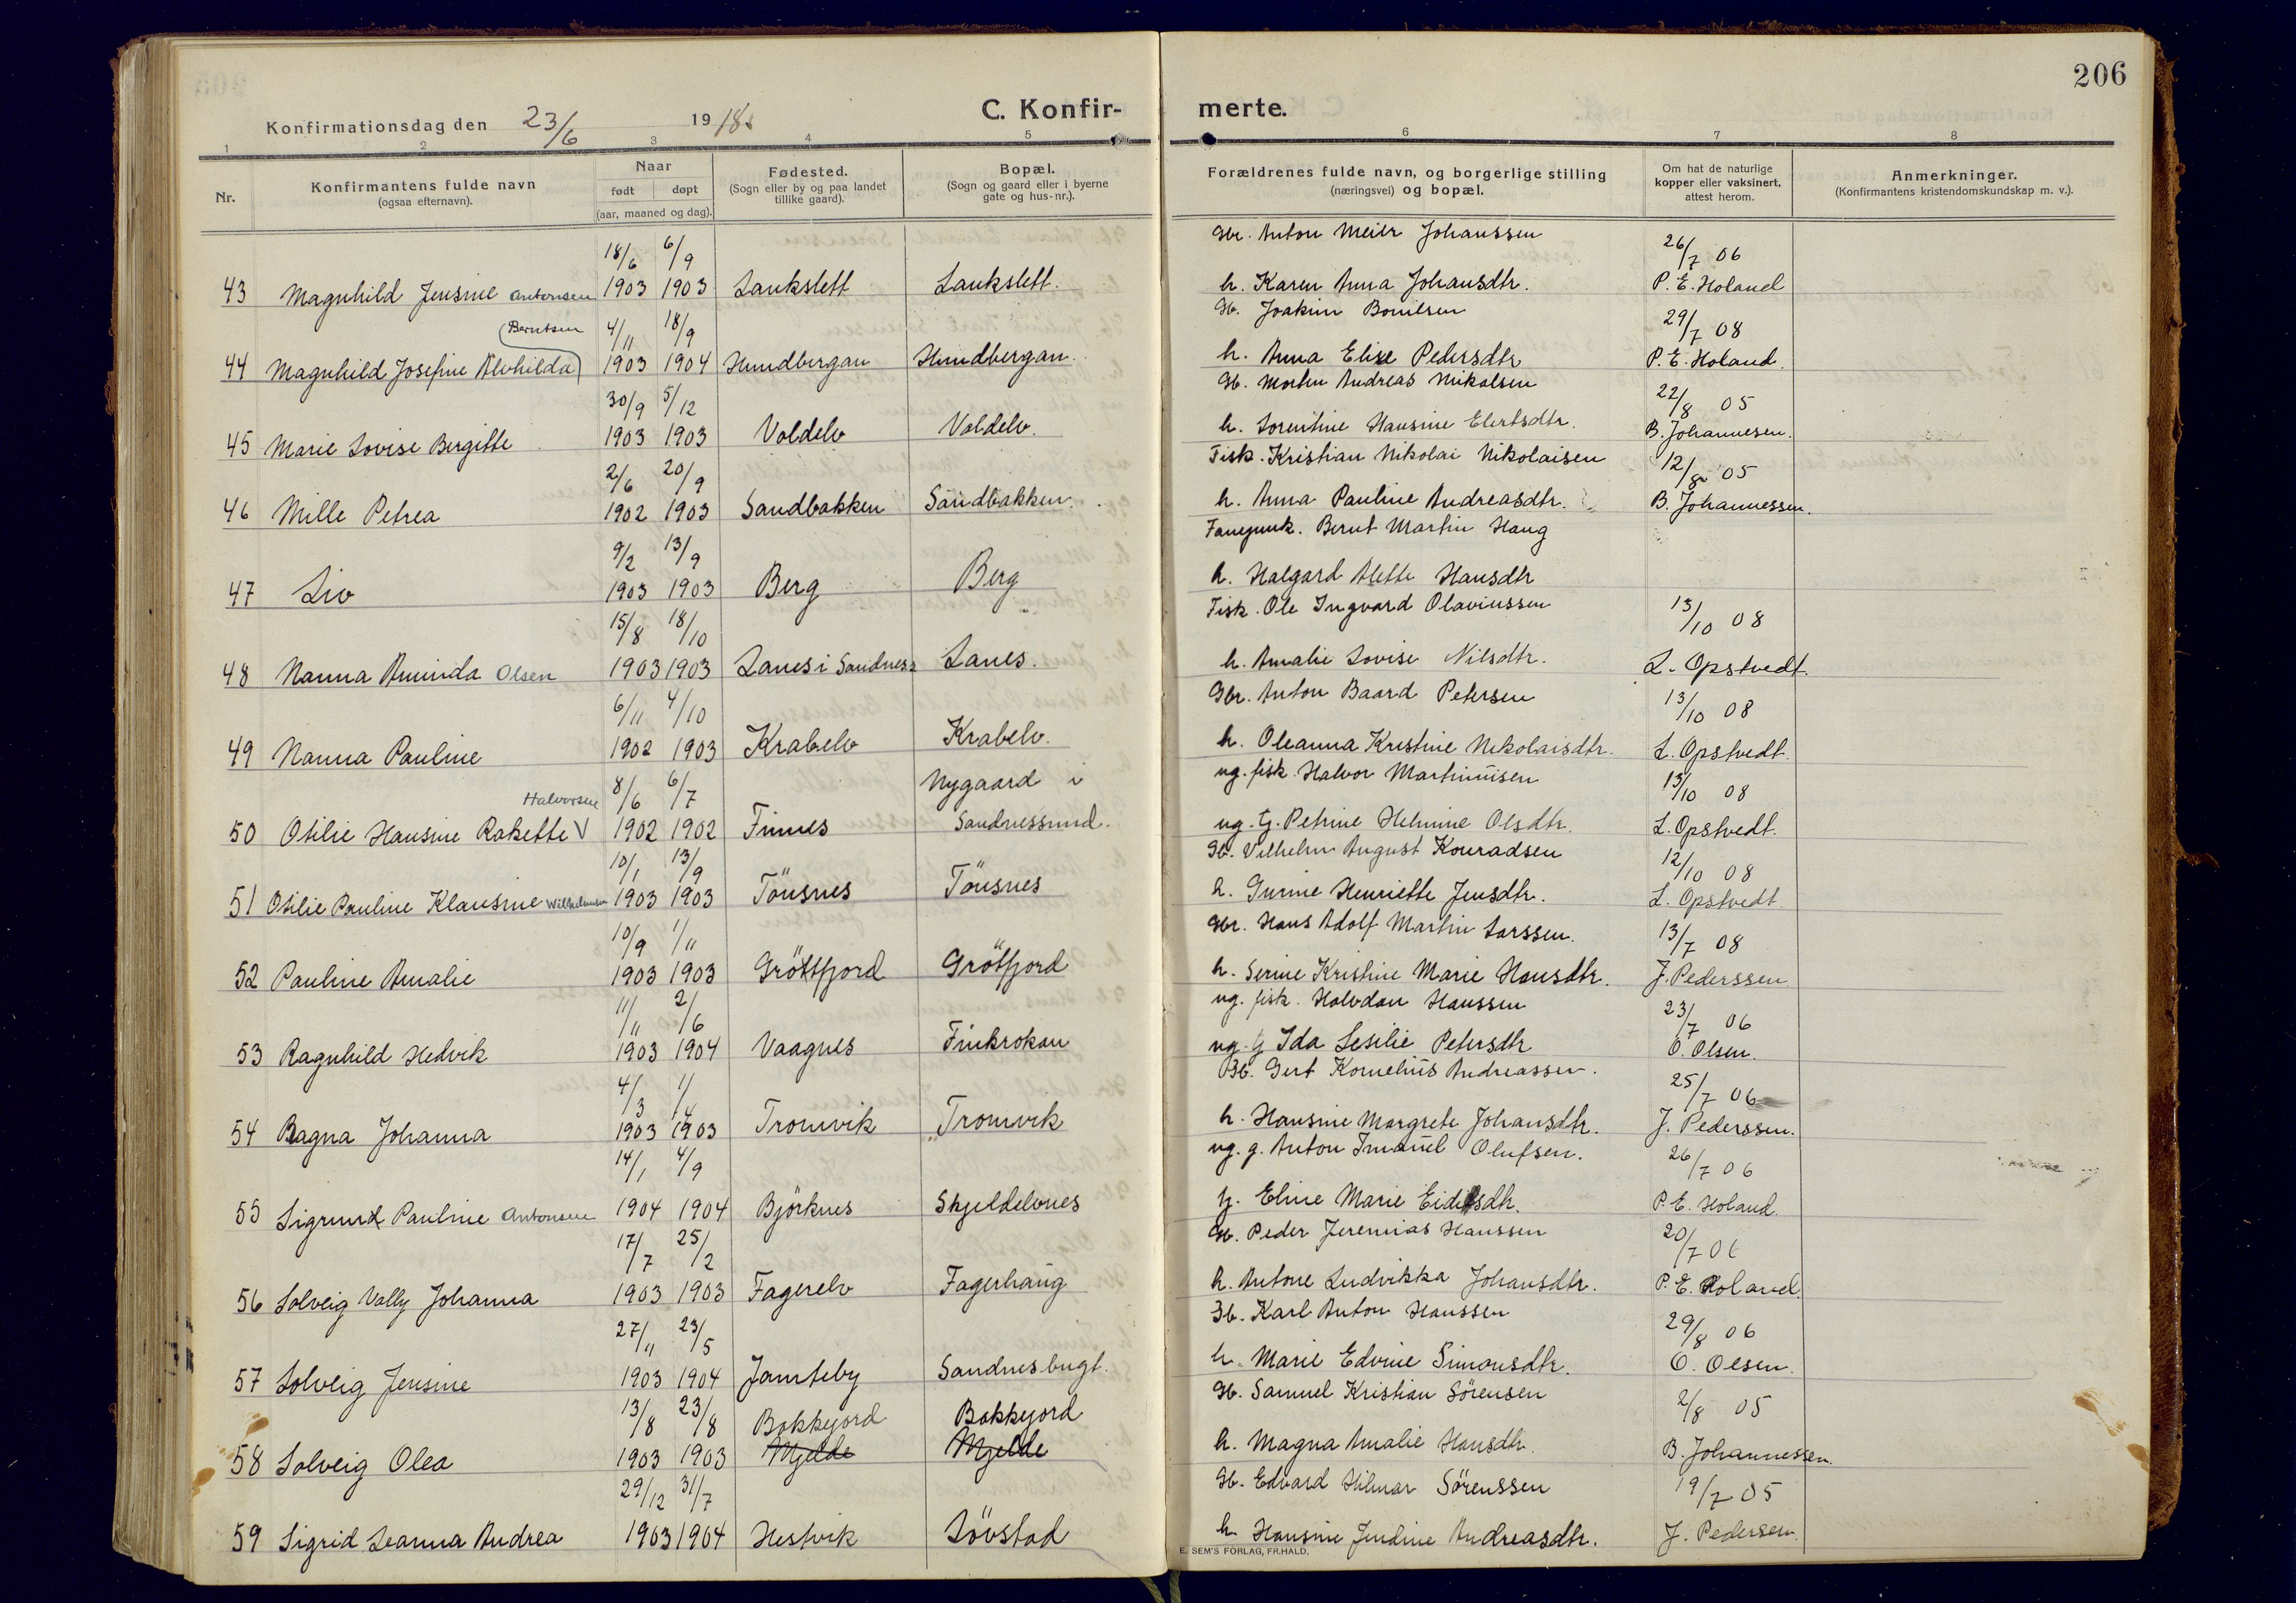 206
Konfirmationsdag den 23/6 1918.
C. Konfirmerte.
1 2 3 4 5 6 7 8
Nr.
Konfirmantens fulde navn
(ogsaa efternavn).
Naar
født døpt
(aar, maaned og dag).
Fødested.
(Sogn eller by og paa landet
tillike gaard).
Bopæl.
(Sogn og gaard eller i byerne
gate og hus-nr.).
Forældrenes fulde navn, og borgerlige stilling
(næringsvei) og bopæl.
Om hat de naturlige
kopper eller vaksinert,
attest herom.
Anmerkninger.
(Konfirmantens kristendomskundskap m. v.).
18/6 6/9 Gbr. Anton Meier Johanssen 26/7 06
43 Magnhild Jensine Antonsen 1903 1903 Lankslett Lankslett. h. Karen Anna Johansdtr. P. E. Holand
Berntsen 4/11 18/9 Gb. Joakim 29/7 08
44 Magnhild Josefine Alvhilda 1903 1904 Hundbergan Hundbergan. h. Anna Elise Pedersdtr P. E. Holand.
30/9 5/12 Gb. Morten Andreas Nikolsen 22/8 05
45 Marie Lovise Bergitte 1903 1903 Voldelv Voldelv. h. Lorentine Hansine Elertsdtr. B. Johannesen.
2/6 20/9 Fisk. Kristian Nikolai Nikolaisen 12/8 05
46 Mille Petrea 1902 1903 Sandbakken Sandbakken. h. Anna Pauline Andreasdtr. B. Johannessen.
9/2 13/9 Bernt Martin Haug
47 Liv 1903 1903 Berg Berg h. Halgard Alette Hansdtr
15/8 18/10 Fisk. Ole Ingvard Olaviussen 13/10 08
48 Nanna Aminda Olsen 1903 1903 Lanes i Sandness Lanes. h. Amalie Lovise Nilsdtr. L. Opstvedt.
6/11 4/10 Gbr. Anton Baard Petersen 13/10 08
49 Nanna Pauline 1902 1903 Krabelv Krabelv. h. Oleanna Kristine Nikolaisdtr. L. Opstvedt.
Halvorsen 8/6 6/7 Nygaard i ug. fisk. Halvor Martinusen 13/10 08
50 Otilie Hansine Rakette V 1902 1902 Finnes Sandnessund. ug. tj. Petrine Helmine Olsdtr. L. Opstvedt.
10/1 13/9 Gb. Vilhelm August Konradsen 12/10 08
51 Otilie Pauline Klausine Wilhelmsen 1903 1903 Tönsnes Tönsnes h. Gurine Henriette Jensdtr. L. Opstvedt.
10/9 1/11 Gbr. Hans Adolf Martin Larssen. 13/7 08
52 Pauline Amalie 1903 1903 Gröttfjord Grötfjord h. Serine Kristine Marie Hansdtr. J. Pederssen
11/11 2/6 ug. fisk. Halvdan Hanssen 23/7 06
53 Ragnhild Hedvik 1903 1904 Vaagnes Finkrokan ug. tj Ida Lesilie Petersdtr O. Olsen.
4/3 1/4 Gb. Gert Kornelius Andreassen. 25/7 06
54 Ragna Johanna 1903 1903 Tromvik Tromvik h. Hansine Margrete Johansdtr. J. Pederssen.
14/1 4/9 ug. g. Anton Imanuel Olufsen. 26/7 06
55 Sigrund Pauline Antonsen 1904 1904 Björknes Skjeldelvnes tj. Eline Marie Eidisdtr. P. E. Holand.
17/7 25/2 Gb. Peder Jeremias Hanssen 20/7 06
56 Solveig Vally Johanna 1903 1903 Fagerelv Fagerhaug h. Antone Ludvikka Johansdtr. P. E. Holand.
27/11 23/5 Gb. Karl Anton Hanssen 29/8 06
57 Solveig Jensine 1903 1904 Jamteby Sandnesbugt. h. Marie Edvine Simonsdtr. O. Olsen.
13/8 23/8 Bakkejord Bakkejord Gb. Samuel Kristian Sörensen 2/8 05
58 Solveig Olea 1903 1903 Mjelde Mjelde h. Magna Amalie Hansdtr. B. Johannessen.
29/12 31/7 Gb. Edvard Hilmar Sörenssen 19/7 05
59 Sigrid Leanna Andrea 1903 1904 Hestvik Lövstad h. Hansine Jendine Andreasdtr. J. Pedersen.
E. SEM'S FORLAG, FR.HALD.